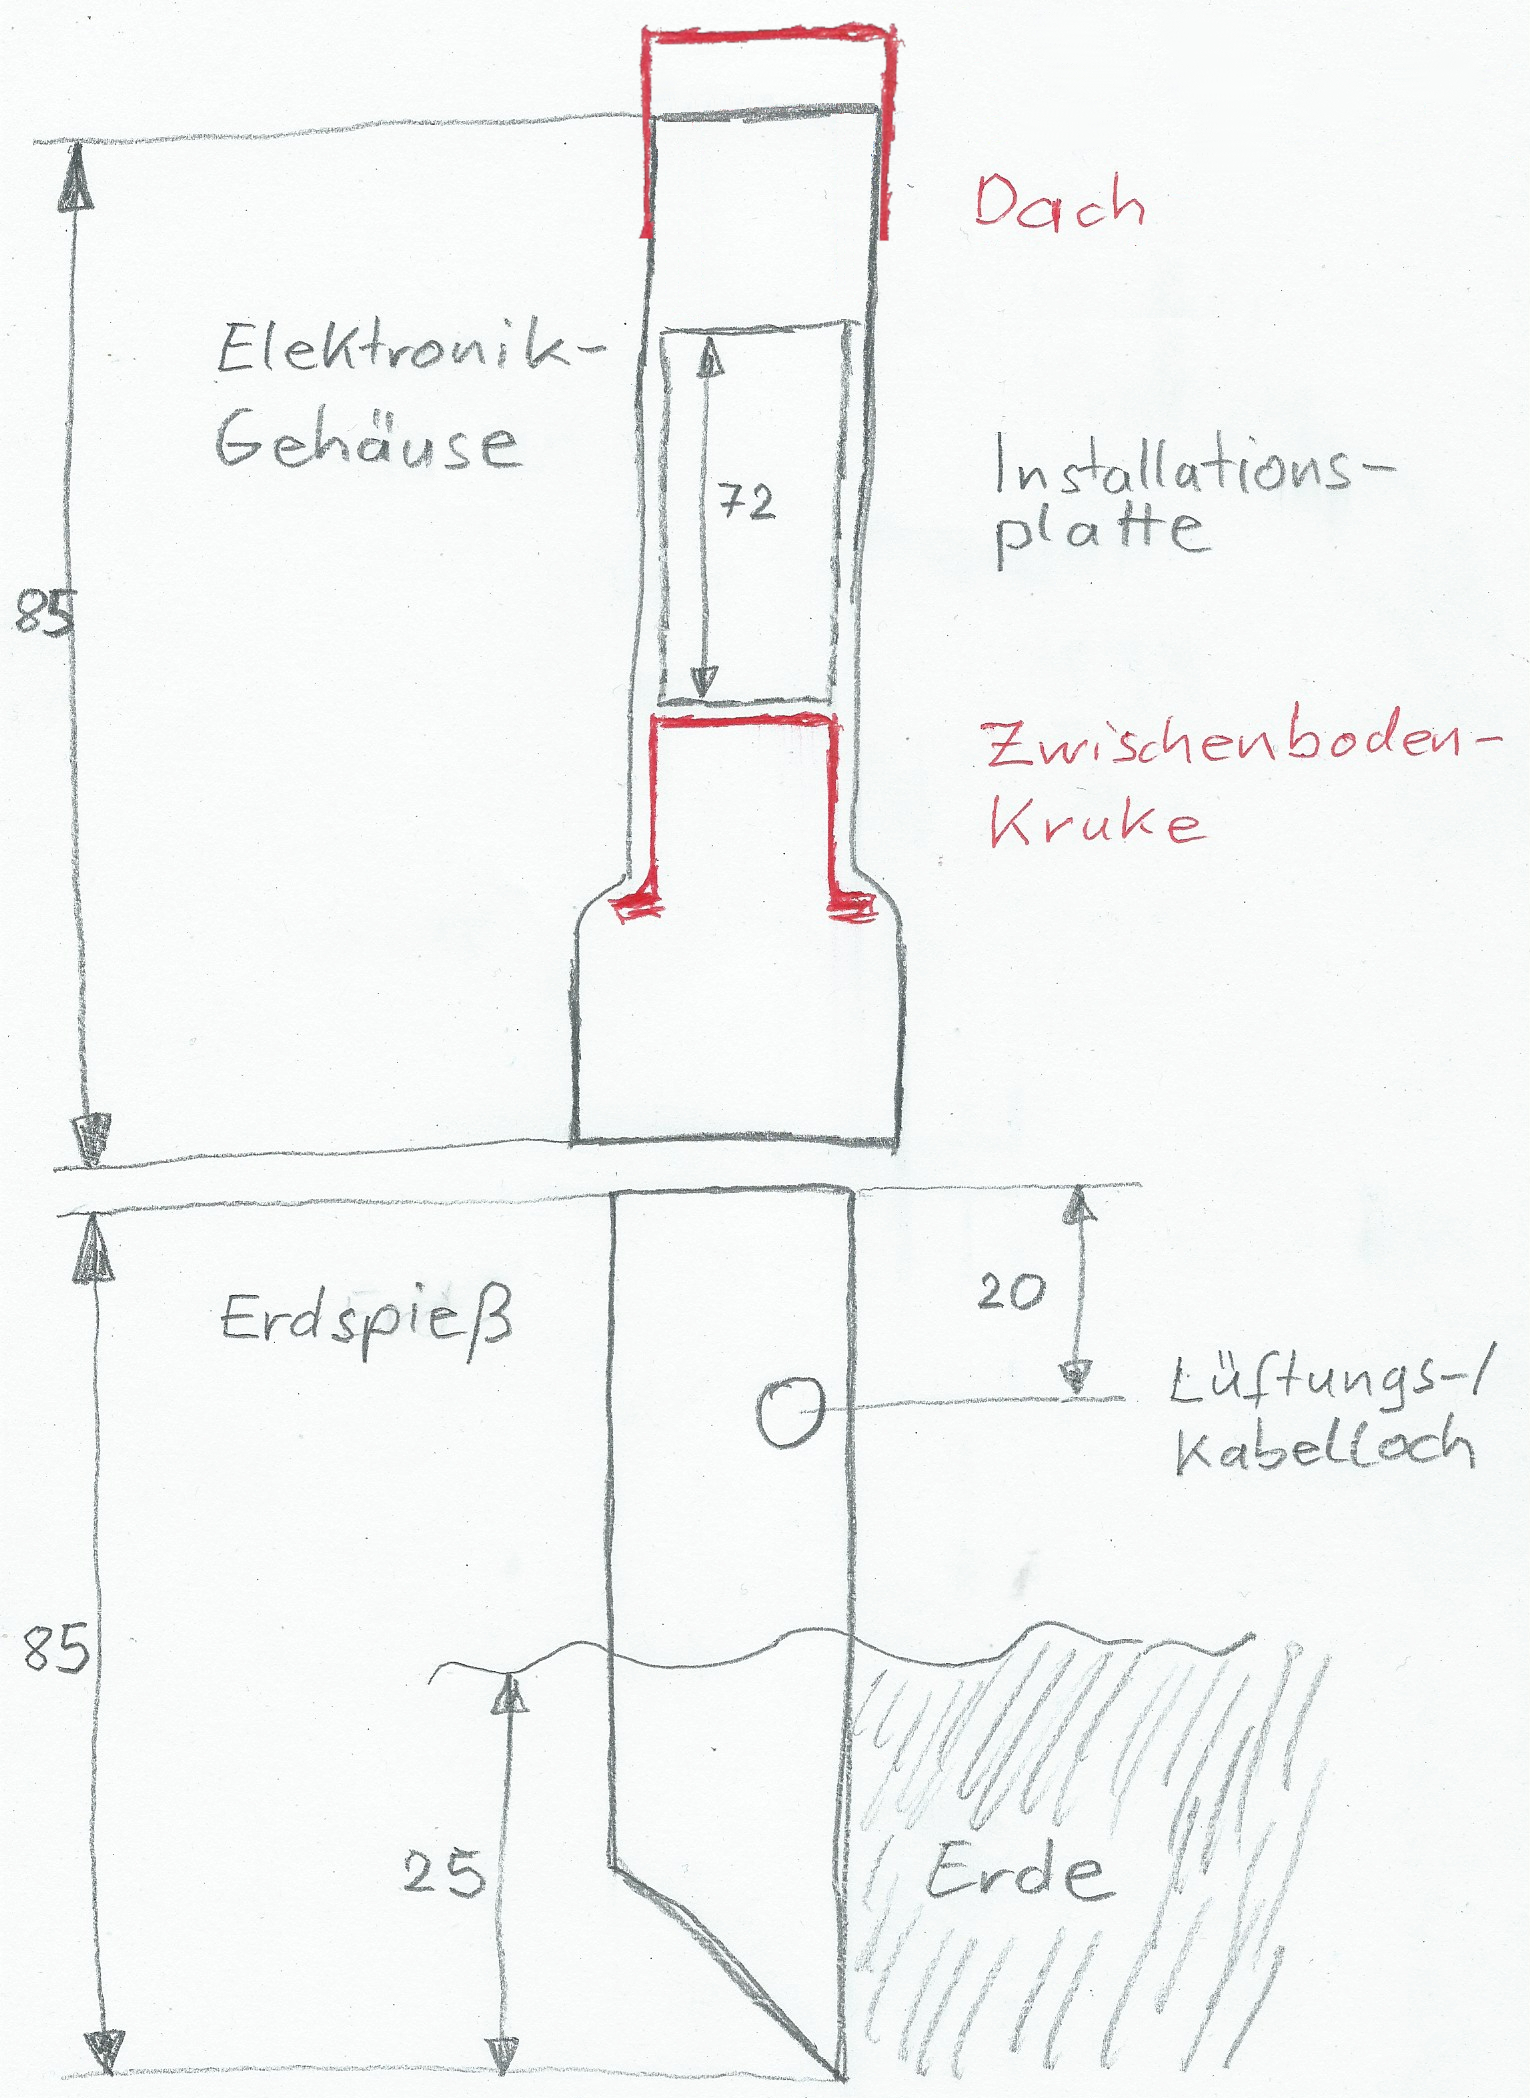 Dach
Elektronik-
Gehäuse
Installations-
platte
72
85
Zwischenboden-
Kruke
Erdspieß
20
Lüftungs-/
Kabelloch
85
25
Erde